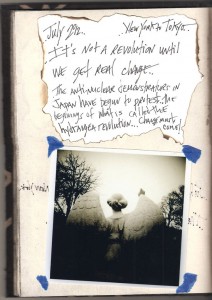 July 2012. New York to Tokyo.
It's not a revolution until
we get real change..
The anti-nuclear demonstrators in
Japan have begun to protest, the
beginnings of what is called the
hydrangea revolution... Change must
come!